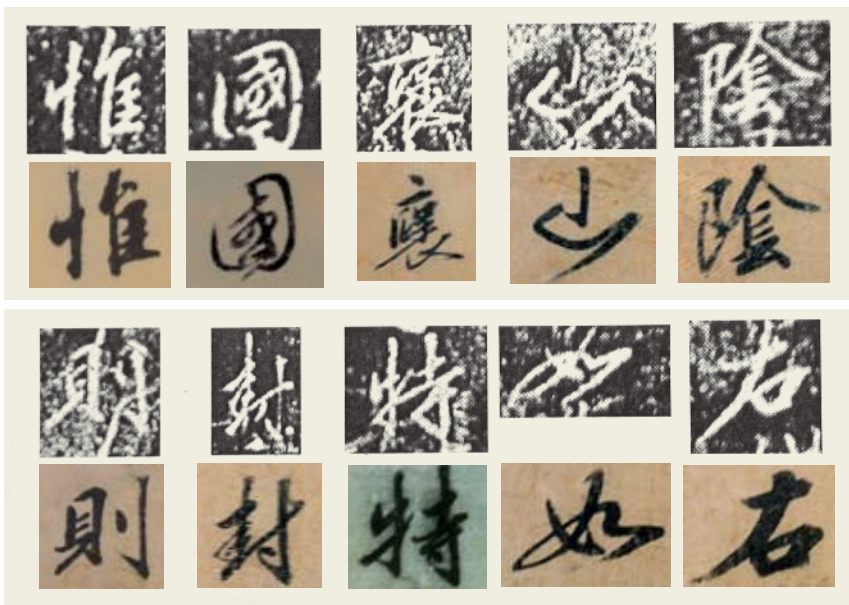 惟 國 褒 山 陰
惟 國 褒 山 陰
則 封 特 如 右
則 封 特 如 右